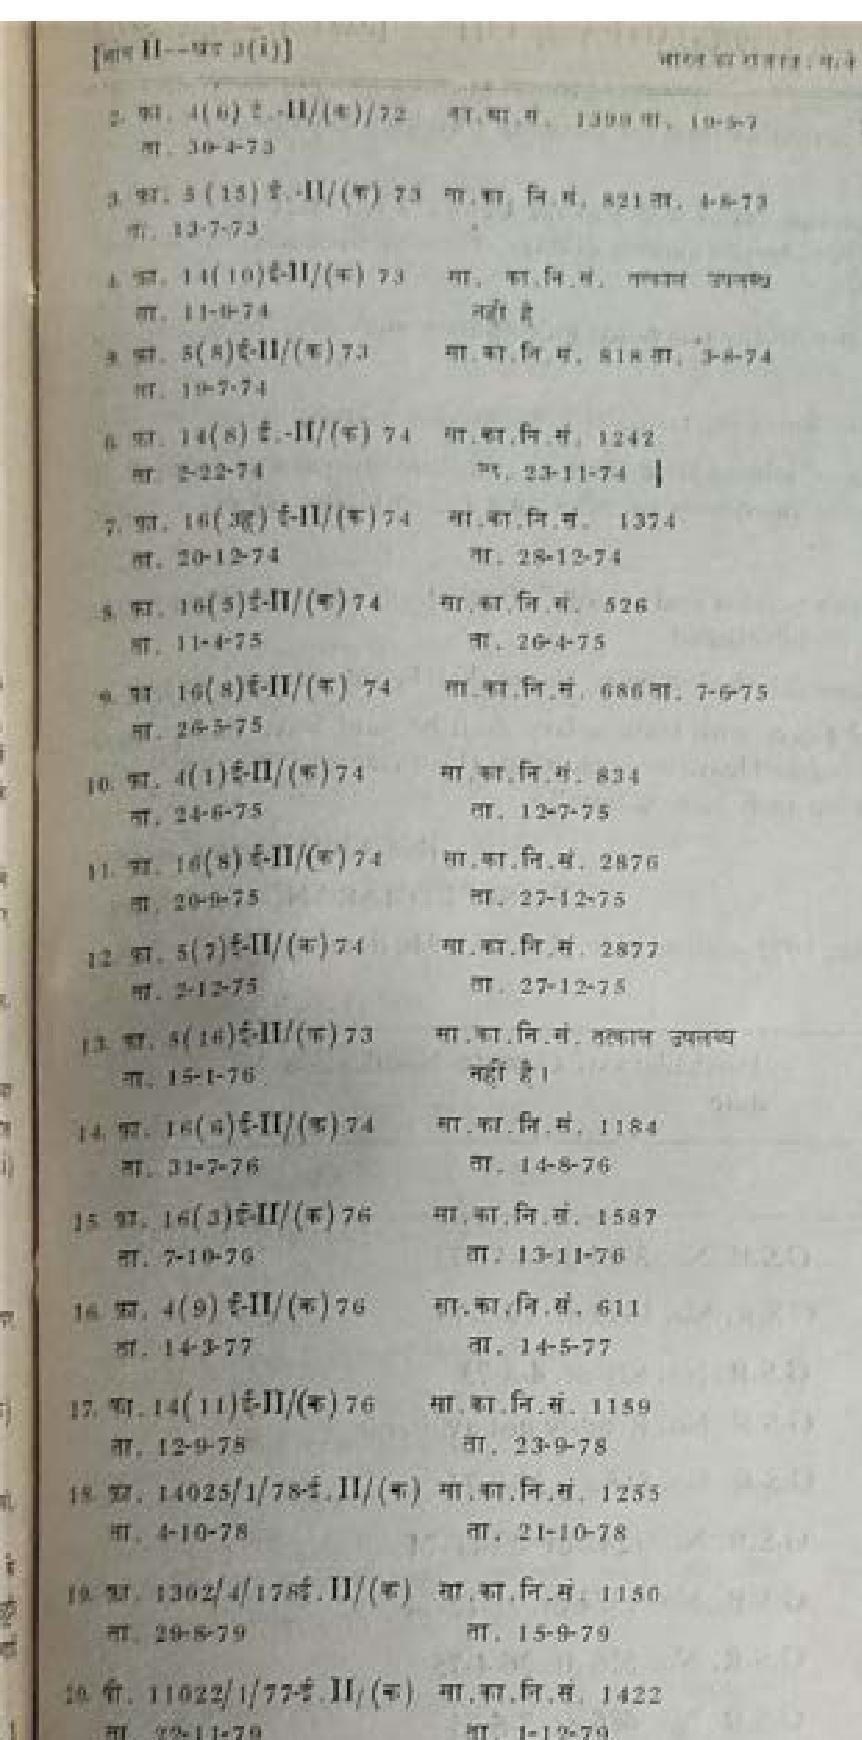 [भाग II--खंड 3(i)] भारत का राजपत्र,
2. फा. 4(6) ई.-II/(क)/72 सा.का.नि.सं. 1399 ता. 19-5-7
ता. 30-4-73
3. फा. 5 (15) ई.-II/(क) 73 सा.का. नि.सं. 821 ता. 4-8-73
ता. 13-7-73
4. फा. 14(10)ई-II/(क) 73 सा. का.नि.सं. तत्काल उपलब्ध
ता. 11-9-74 नहीं है
5. फा. 5(8)ई-II/(क) 73 सा.का.नि.सं. 818 ता. 3-8-74
ता. 19-7-74
6. फा. 14(8) ई.-II/(क) 74 सा.का.नि.सं. 1242
ता. 2-22-74 23-11-74
7. फा. 16(3ह) ई-II/(क) 74 सा.का.नि.सं. 1374
ता. 20-12-74 ता. 28-12-74
8. फा. 16(5)ई-II/(क) 74 सा.का.नि.सं. 526
ता. 11-4-75 ता. 26-4-75
9. फा 16(8)ई-II/(क) 74 सा.का.नि.सं. 686 ता. 7-6-75
ता. 26-5-75
10. फा. 4(1)ई-II/(क) 74 सा.का.नि.सं. 834
ता. 24-6-75 ता. 12-7-75
11. फा. 16(8) ई-II/(क) 74 सा.का.नि.सं. 2876
ता. 20-9-75 ता. 27-12-75
12. फा. 5(7)ई-II/(क) 74 सा.का.नि.सं. 2877
ता. 2-12-75 ता. 27-12-75
13. फा. 5(16)ई-II/(क) 73 सा.का.नि.सं. तत्काल उपलब्ध
ता. 15-1-76 नहीं है।
14. फा. 16(6)ई-II/(क) 74 सा.का.नि.सं. 1184
ता. 31-7-76 ता. 14-8-76
15. फा. 16(3)ई-II/(क) 76 सा.का.नि.सं. 1587
ता. 7-10-76 ता. 13-11-76
16. फा. 4(9) ई-II/(क) 76 सा.का.नि.सं. 611
ता. 14-3-77 ता. 14-5-77
17. फा. 14(11)ई-II/(क) 76 सा.का.नि.सं. 1159
ता. 12-9-78 ता. 23-9-78
18. फा. 14025/1/78-ई.II/(क) सा.का.नि.सं. 1255
ता. 4-10-78 ता. 21-10-78
19. फा. 1302/4/178ई.II/(क) सा.का.नि.सं. 1150
ता. 29-8-79 ता. 15-9-79
20. पी. 11022/1/77-ई.II/(क) सा.का.नि.सं. 1422
ता. 22-11-79 ता. 1-12-79